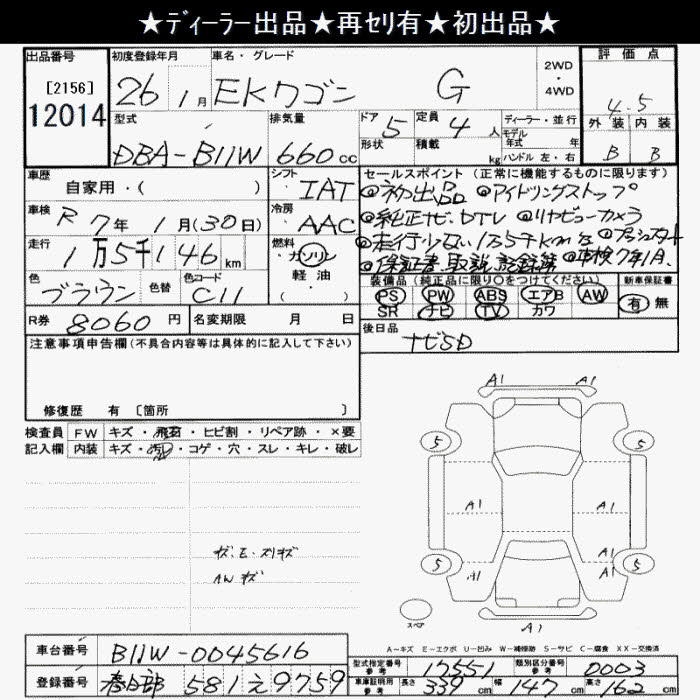 ★ディーラー出品★再セリ有★初出品★
出品番号 初度登録年月 車名・グレード 2WD・4WD 評価点
[2156] 12014 26年 1月 EKワゴン G 4.5
型式 排気量 ドア 定員 ディーラー・並行 外装 内装
DBA-B11W 660cc 5 4人 モデル年式 年 B B
形状 積載 kg ハンドル 左・右
車歴 シフト セールスポイント(正常に機能するものに限ります)
自家用・( ) IAT ◎初出品 ◎アイドリングストップ
車検 R7年1月(30日) 冷房 AAC ◎純正ナビ.DTV ◎リヤビューカメラ
走行 1万5千146km 燃料 ガソリン ◎走行少ない1.5千km台 ◎プッシュスタート
軽油・( ) ◎保証書 取説 記録簿 ◎車検7年1月
色 色替 色コード 装備品(純正品に限り○をつけてください) 新車保証書
ブラウン C11 PS PW ABS エアB AW 有 無
SR ナビ TV カワ
R券 8060円 名変期限 月 日 後日品
ナビSD
注意事項申告欄(不具合内容等は具体的に記入して下さい)
修復歴 有 [箇所 ]
検査員 FW キズ・飛石・ヒビ割・リペア跡・×要
記入欄 内装 キズ・汚れ・コゲ・穴・スレ・キレ・破レ
A1 A1
5 5
A1 A1
A1
5 5
A1 A1
A1
スペア
A1
AWキズ
A-キズ E-エクボ U-凹み W-補修跡 S-サビ C-腐食 XX-交換済
車台番号 B11W-0045616
型式指定番号 参考 17551 類別区分番号 参考 0003
登録番号 春日部 581 え 9759
車庫証明用 参考 長さ 339cm 幅 147cm 高さ 162cm